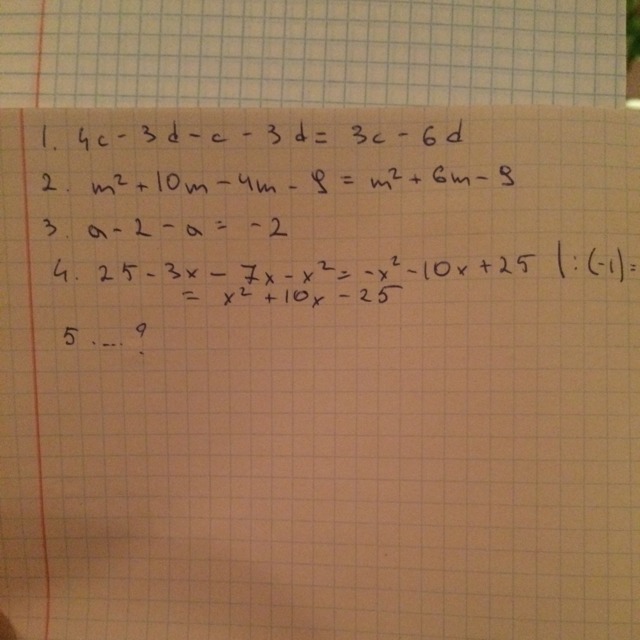 1. 4c - 3d - c - 3d = 3c - 6d
2. m² + 10m - 4m - 9 = m² + 6m - 9
3. a - 2 - a = -2
4. 25 - 3x - 7x - x² = -x² - 10x + 25 | : (-1) =
= x² + 10x - 25
5 ....?